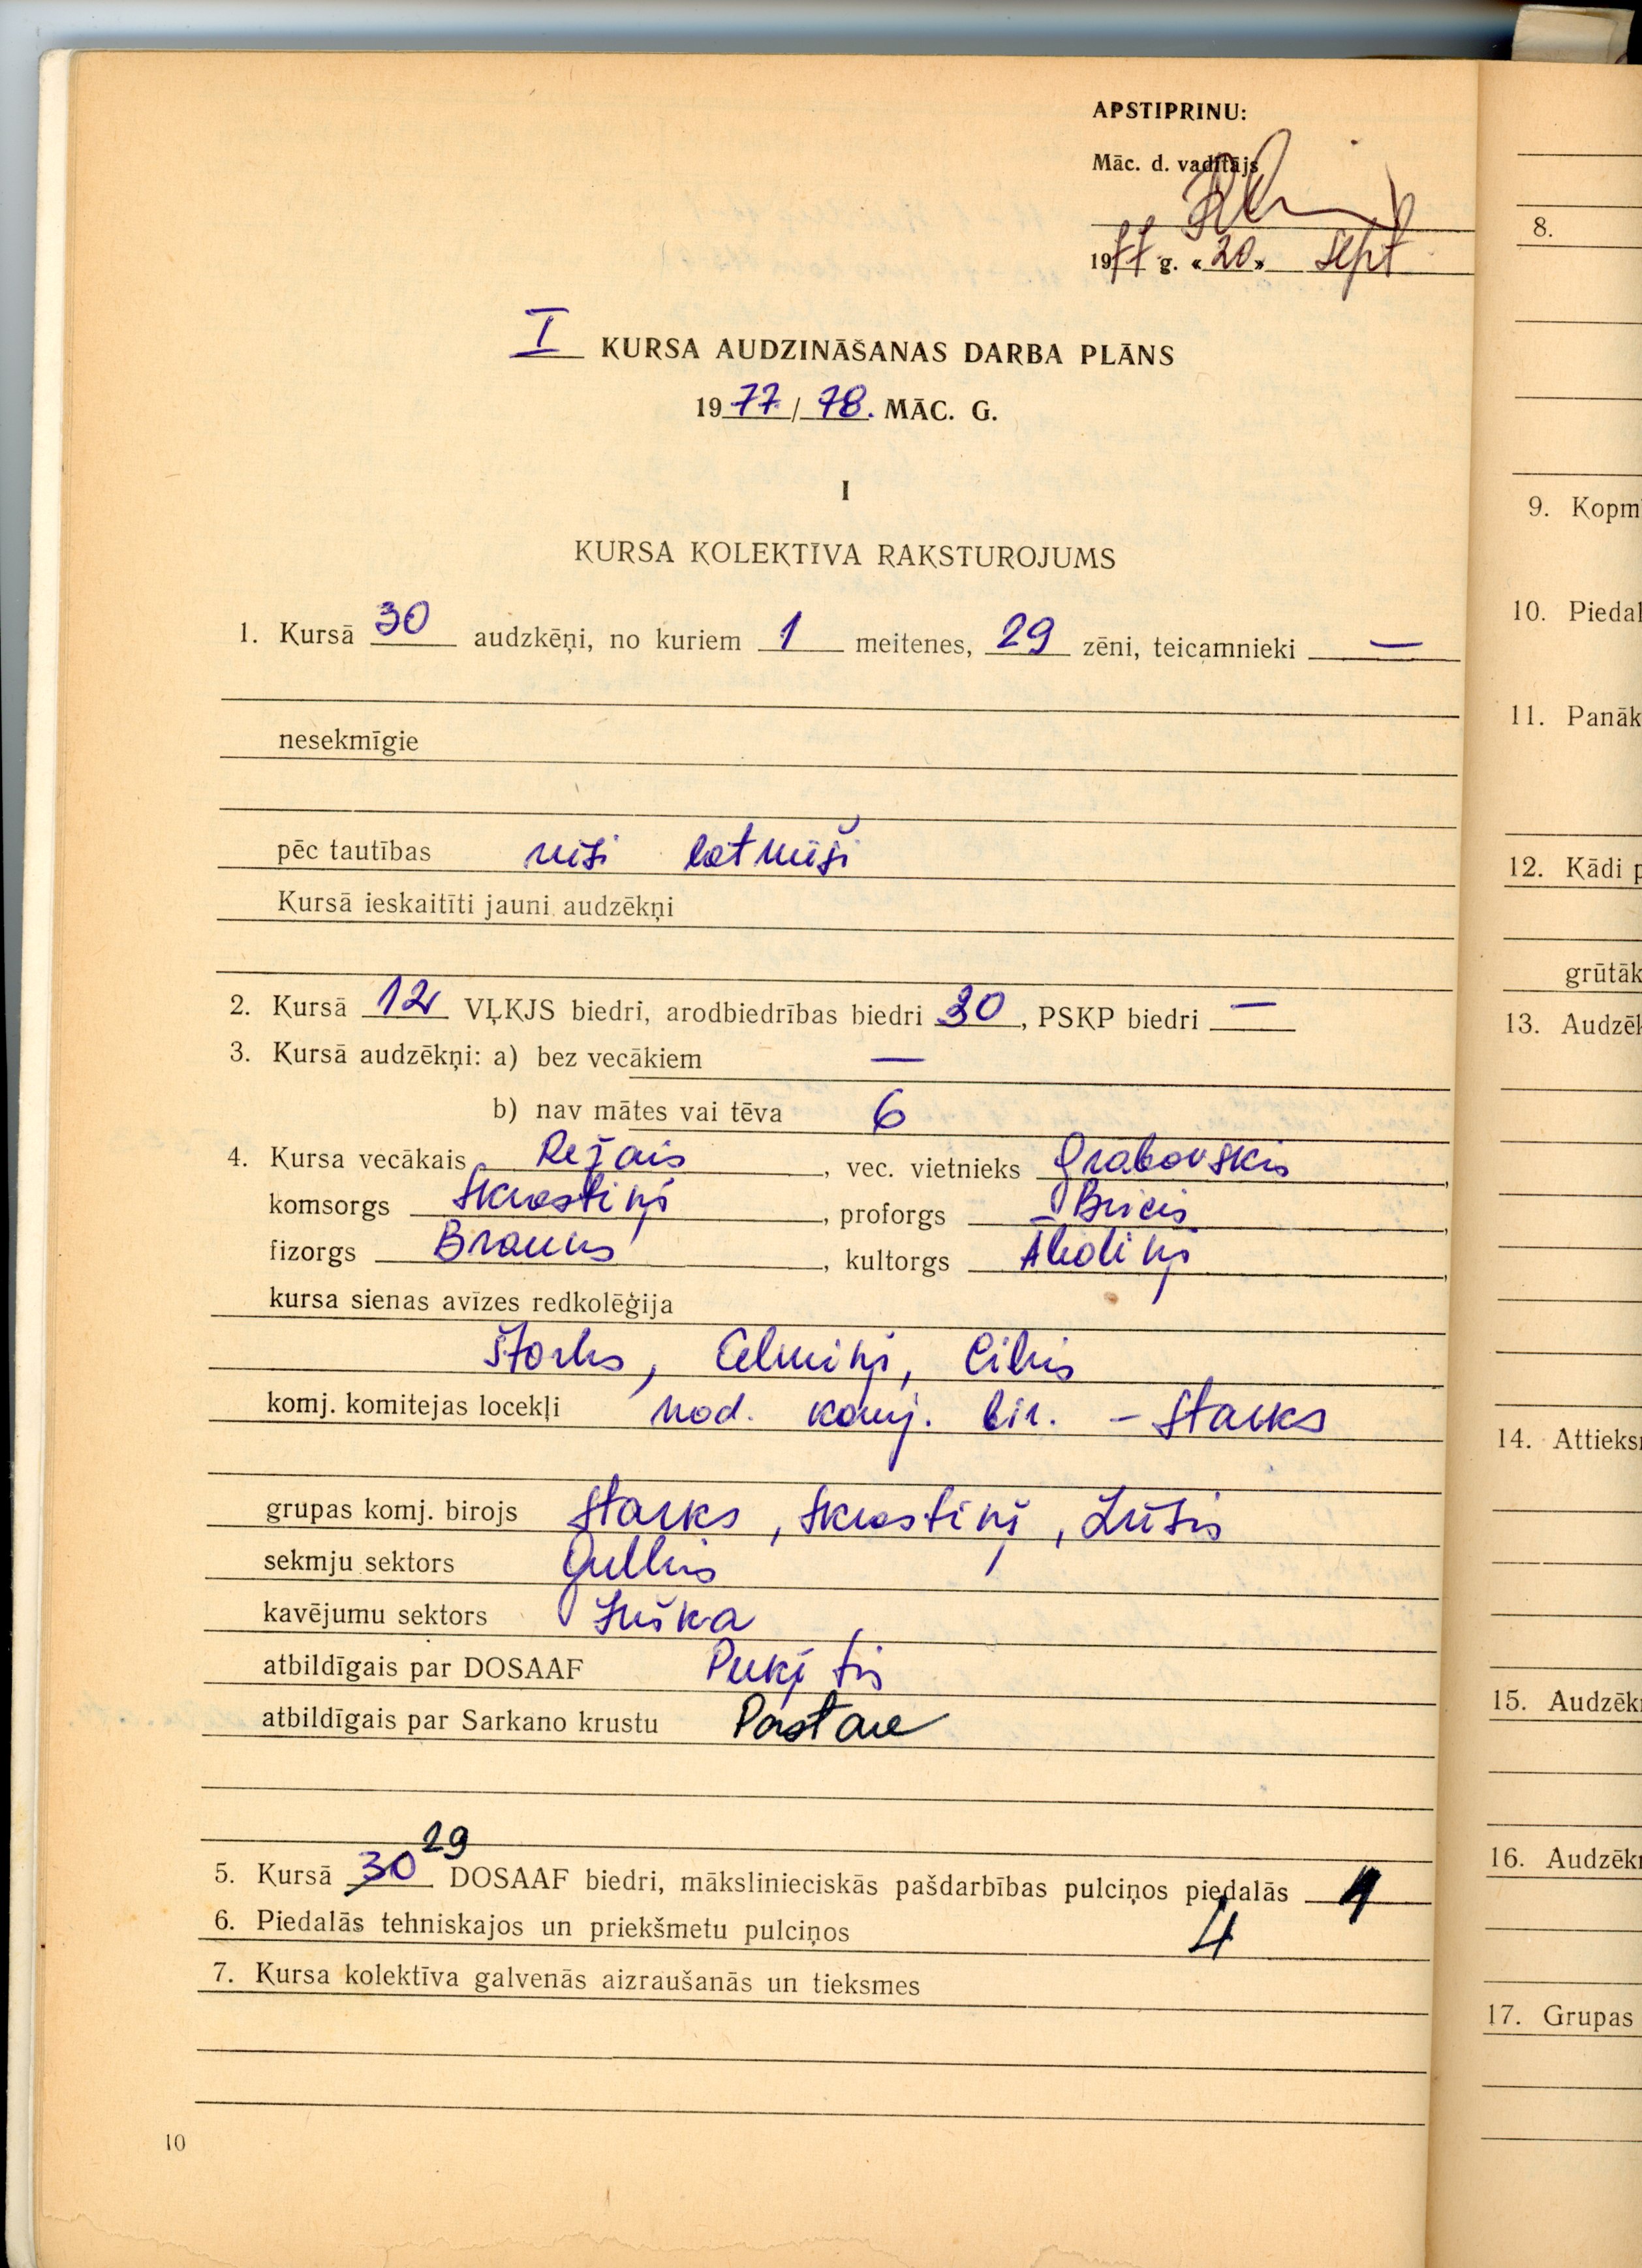 APSTIPRINU:
Māc. d. vadītājs
1977 g. «20» sept
I KURSA AUDZINĀŠANAS DARBA PLĀNS
1977/78. MĀC. G.
I
KURSA KOLEKTĪVA RAKSTUROJUMS
1. Kursā 30 audzkēņi, no kuriem 1 meitenes, 29 zēni, teicamnieki —
nesekmīgie
pēc tautības visi latvieši
Kursā ieskaitīti jauni audzēkņi
2. Kursā 12 VĻKJS biedri, arodbiedrības biedri 30, PSKP biedri —
3. Kursā audzēkņi: a) bez vecākiem —
b) nav mātes vai tēva 6
4. Kursa vecākais Režais, vec. vietnieks Grabovskis,
komsorgs Skrastiņš, proforgs Bricis,
fizorgs Brauns, kultorgs Āboliņš,
kursa sienas avīzes redkolēģija
Štorks, Celmiņš, Cilnis
komj. komitejas locekļi nod. komj. bir. – Starks
grupas komj. birojs Starks, Skrastiņš, Lūsis
sekmju sektors Gulbis
kavējumu sektors Luška
atbildīgais par DOSAAF Puķītis
atbildīgais par Sarkano krustu Pastare
29
5. Kursā 30 DOSAAF biedri, mākslinieciskās pašdarbības pulciņos piedalās 1
6. Piedalās tehniskajos un priekšmetu pulciņos 4
7. Kursa kolektīva galvenās aizraušanās un tieksmes
10
8.
9. Kopm
10. Piedal
11. Panāk
12. Kādi p
grūtāk
13. Audzēk
14. Attieks
15. Audzēk
16. Audzēk
17. Grupas